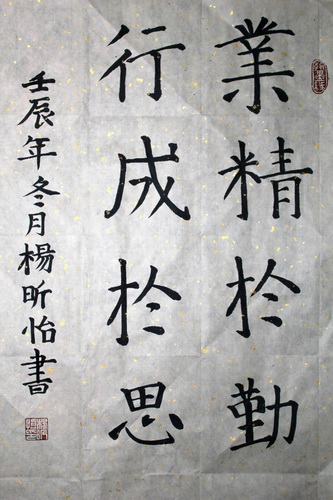 業精於勤
行成於思
壬辰年冬月楊昕怡書